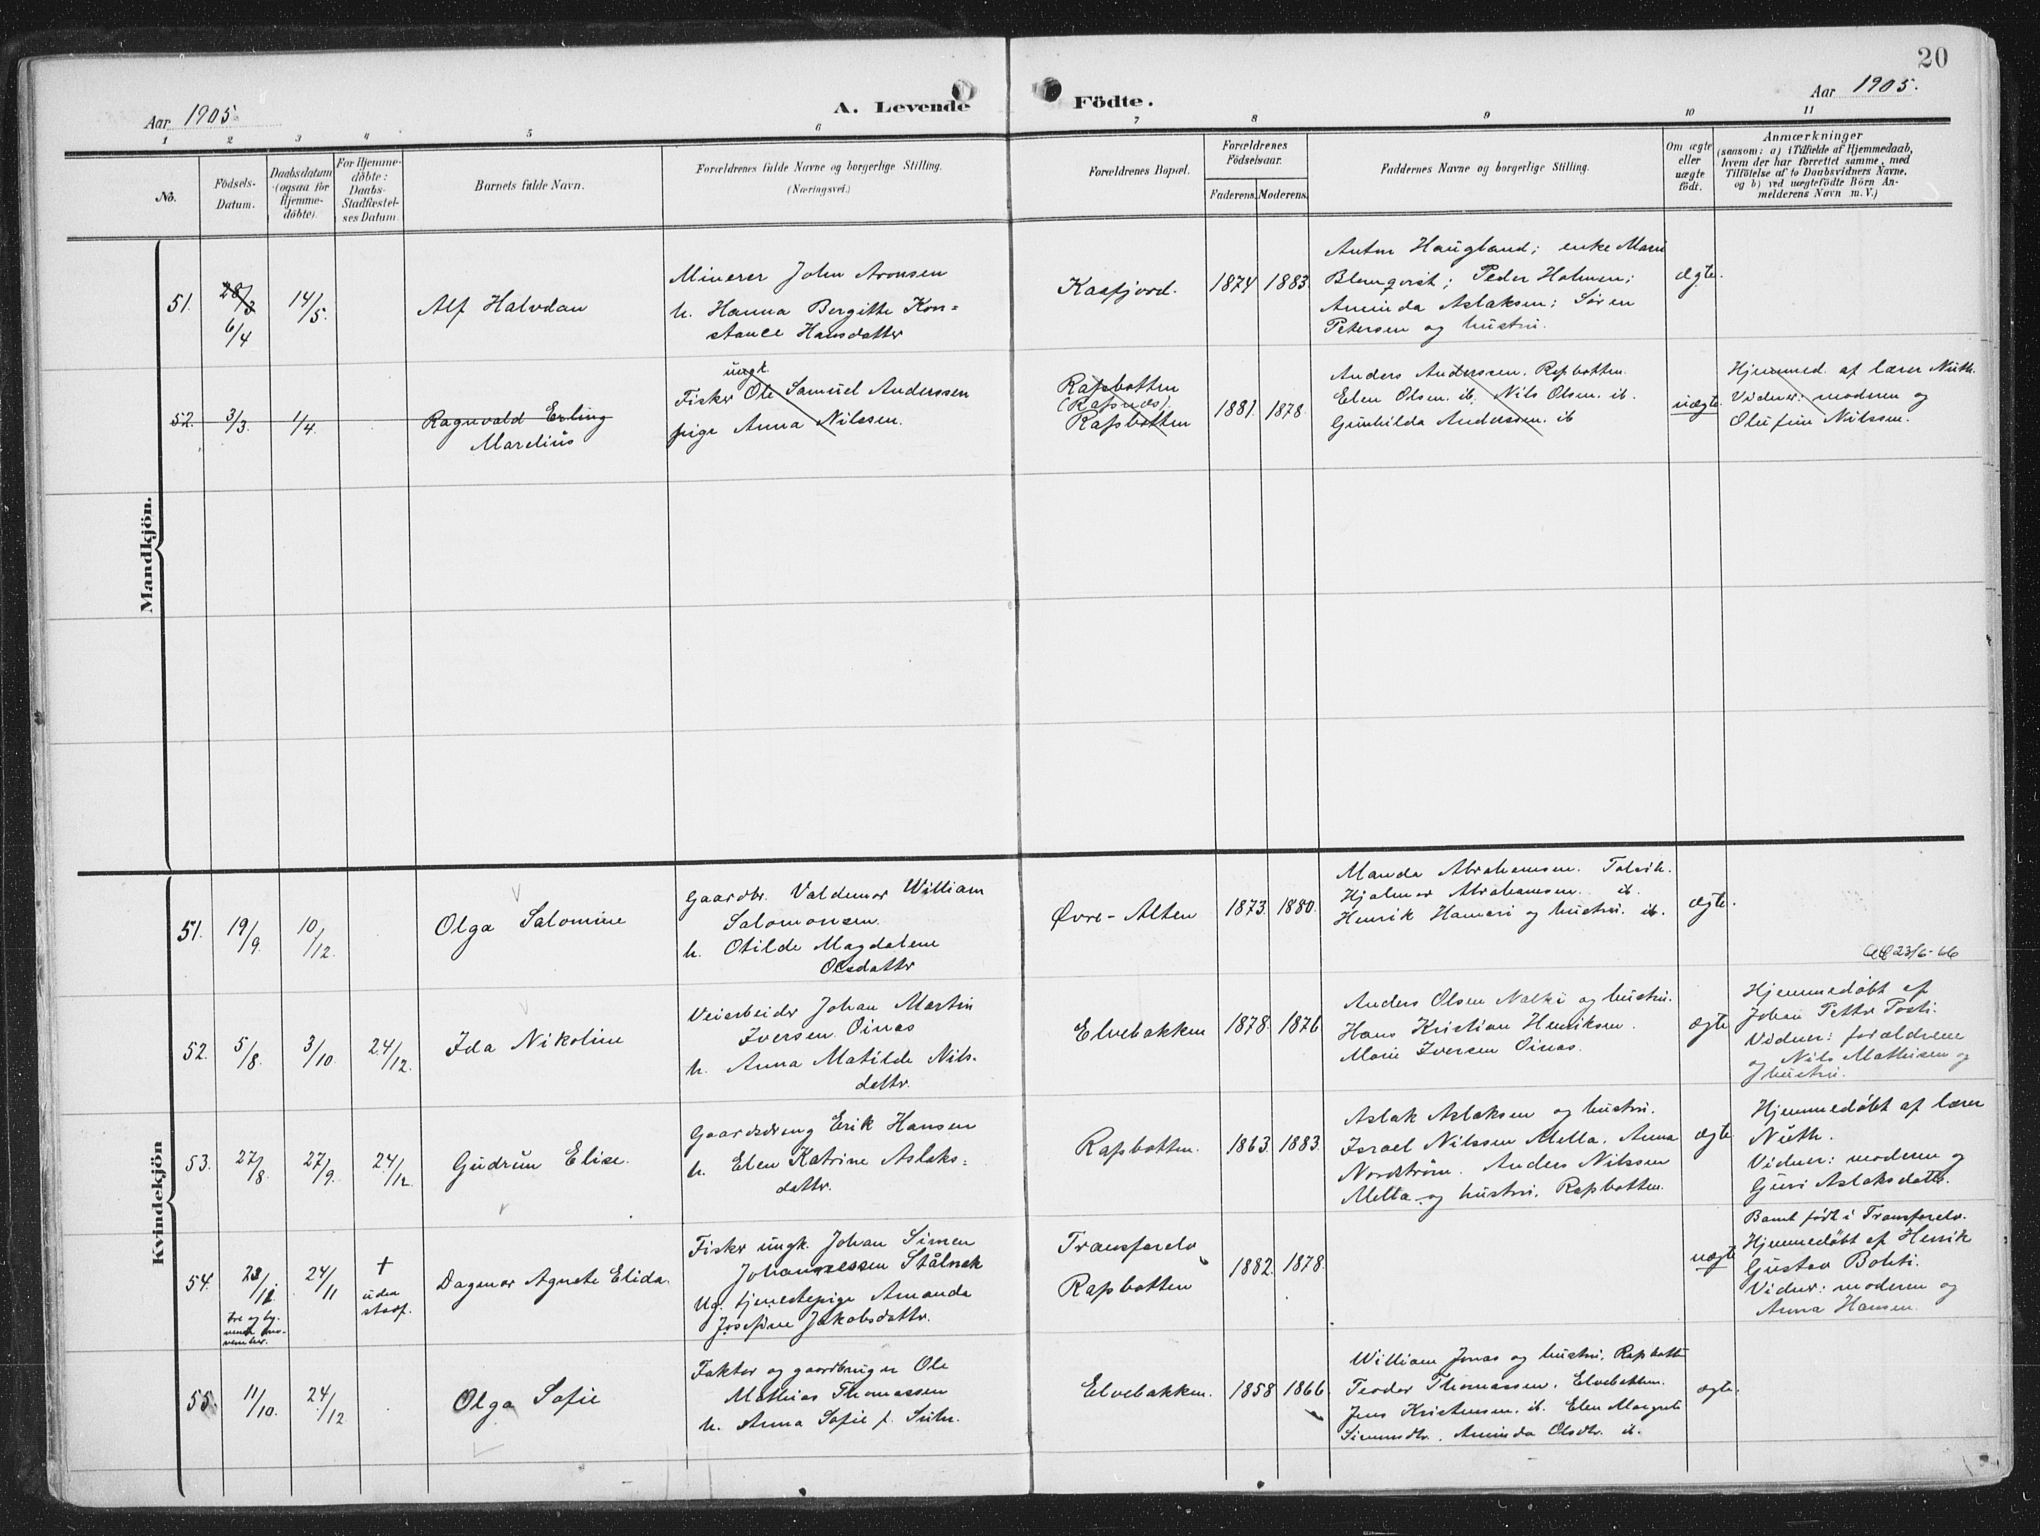 20
Aar 1905.
A. Levende Födte.
Aar 1905.
1 2 3 4 5 6 7 8 9 10 11
No.
Födsels-Datum.
Daabsdatum (ogsaa for Hjemme-döbte).
For Hjemme-döbte: Daabs-Stadfæstel-ses Datum.
Barnets fulde Navn.
Forældrenes fulde Navne og borgerlige Stilling.
(Næringsvei.)
Forældrenes Bopæl.
Forældrenes Födselsaar.
Faderens. Moderens.
Faddernes Navne og borgerlige Stilling.
Om ægte eller uægte födt.
Anmærkninger
(saasom: a) i Tilfælde af Hjemmedaab,
hvem der har forrettet samme, med
Tilföielse af to Daabsvidners Navne.
og b) ved uægtefödte Börn An-
melderens Navn m. V.)
Mandkjön.
51. 28/3 6/4 14/5.
Alf Halvdan
Minerer John Aronsen
h. Hanna Bergitte Kon=
stance Hansdatter
Kaafjord.
1874 1883.
Anton Haugland; enke Marie
Blomqvist; Peder Holmen;
Aminda Aslaksen; Søren
Petersen og hustru.
ægte.
52. 3/3. 1/4.
Ragnvald Erling
Marelius
ungk.
Fisker Ole Samuel Anderssen
pige Anna Nilssen.
Rafsbotten
(Rafsnæs).
Rafsbotten
1881. 1878.
Anders Anderssen. Rafsbotten.
Elen Olsen. ib. Nils Olsen. ib.
Gunhilda Anderssen. ib
uægte
Hjemmed. af lærer Nuth.
Vidner: moderen og
Olufine Nilssen.
Kvindekjön
51. 19/9. 10/12.
Olga Salomine
Gaardbr. Valdemar William
Salomonsen.
h. Otilde Magdalene
Olsdattr
Øvre-Alten
1873. 1880.
Manda Abrahamsen. Talvik.
Hjalmar Abrahamsen. ib.
Henrik Hameri og hustru. ib.
ægte.
23/6-66
52. 5/8. 3/10. 24/12.
Ida Nikoline
Veiarbeider Johan Martin
Iversen Oinas
h. Anna Matilde Nils-
dattr.
Elvebakken
1878. 1876
Anders Olsen Nalki og hustru.
Hans Kristian Henriksen.
Marie Iversen Oinas.
ægte
Hjemmedøbt af
Johan Petter Posti.
Vidner: forældrene
og Nils Mathisen og
hustru.
53. 27/8. 27/9. 24/12
Gudrun Elise.
Gaarddreng Erik Hansen
h. Elen Katrine Aslaks=
dattr.
Rafsbotten.
1863. 1883.
Aslak Aslaksen og hustru.
Israel Nilssen Mella. Anna
Nordstrøm. Anders Nilssen
Mella og hustru. Rafsbotten.
ægte
Hjemmedøbt af lærer
Nuth.
Vidner: moderen og
Guri Aslaksdattr.
54. 23/11 24/11 + uden stadf.
tre og ty-
vende no-
vember.
Dagmar Agnete Elida.
Fisker ungk. Johan Simen
Johannessen Stålnak
Ug. tjenestepige Amanda
Josefine Jakobsdattr.
Transfarelv
Rafsbotten
1882. 1878.
uægte
Barnet født i Transfarelv.
Hjemmedøbt af Henrik
Gustav Bohti.
Vidner: moderen og
Anna Hansen.
55. 11/10. 24/12
Olga Sofie
Faktor og gaardbruger Ole
Mathias Thomassen
h. Anna Sofie f. Suhr.
Elvebakken.
1858 1866.
William Jonas og hustru. Rafsbotten
Teodor Thomassen. Elvebakken.
Jens Kristensen. ib. Elen Margrete
Simonsdtr. Aminda Olsdtr. ib.
ægte.